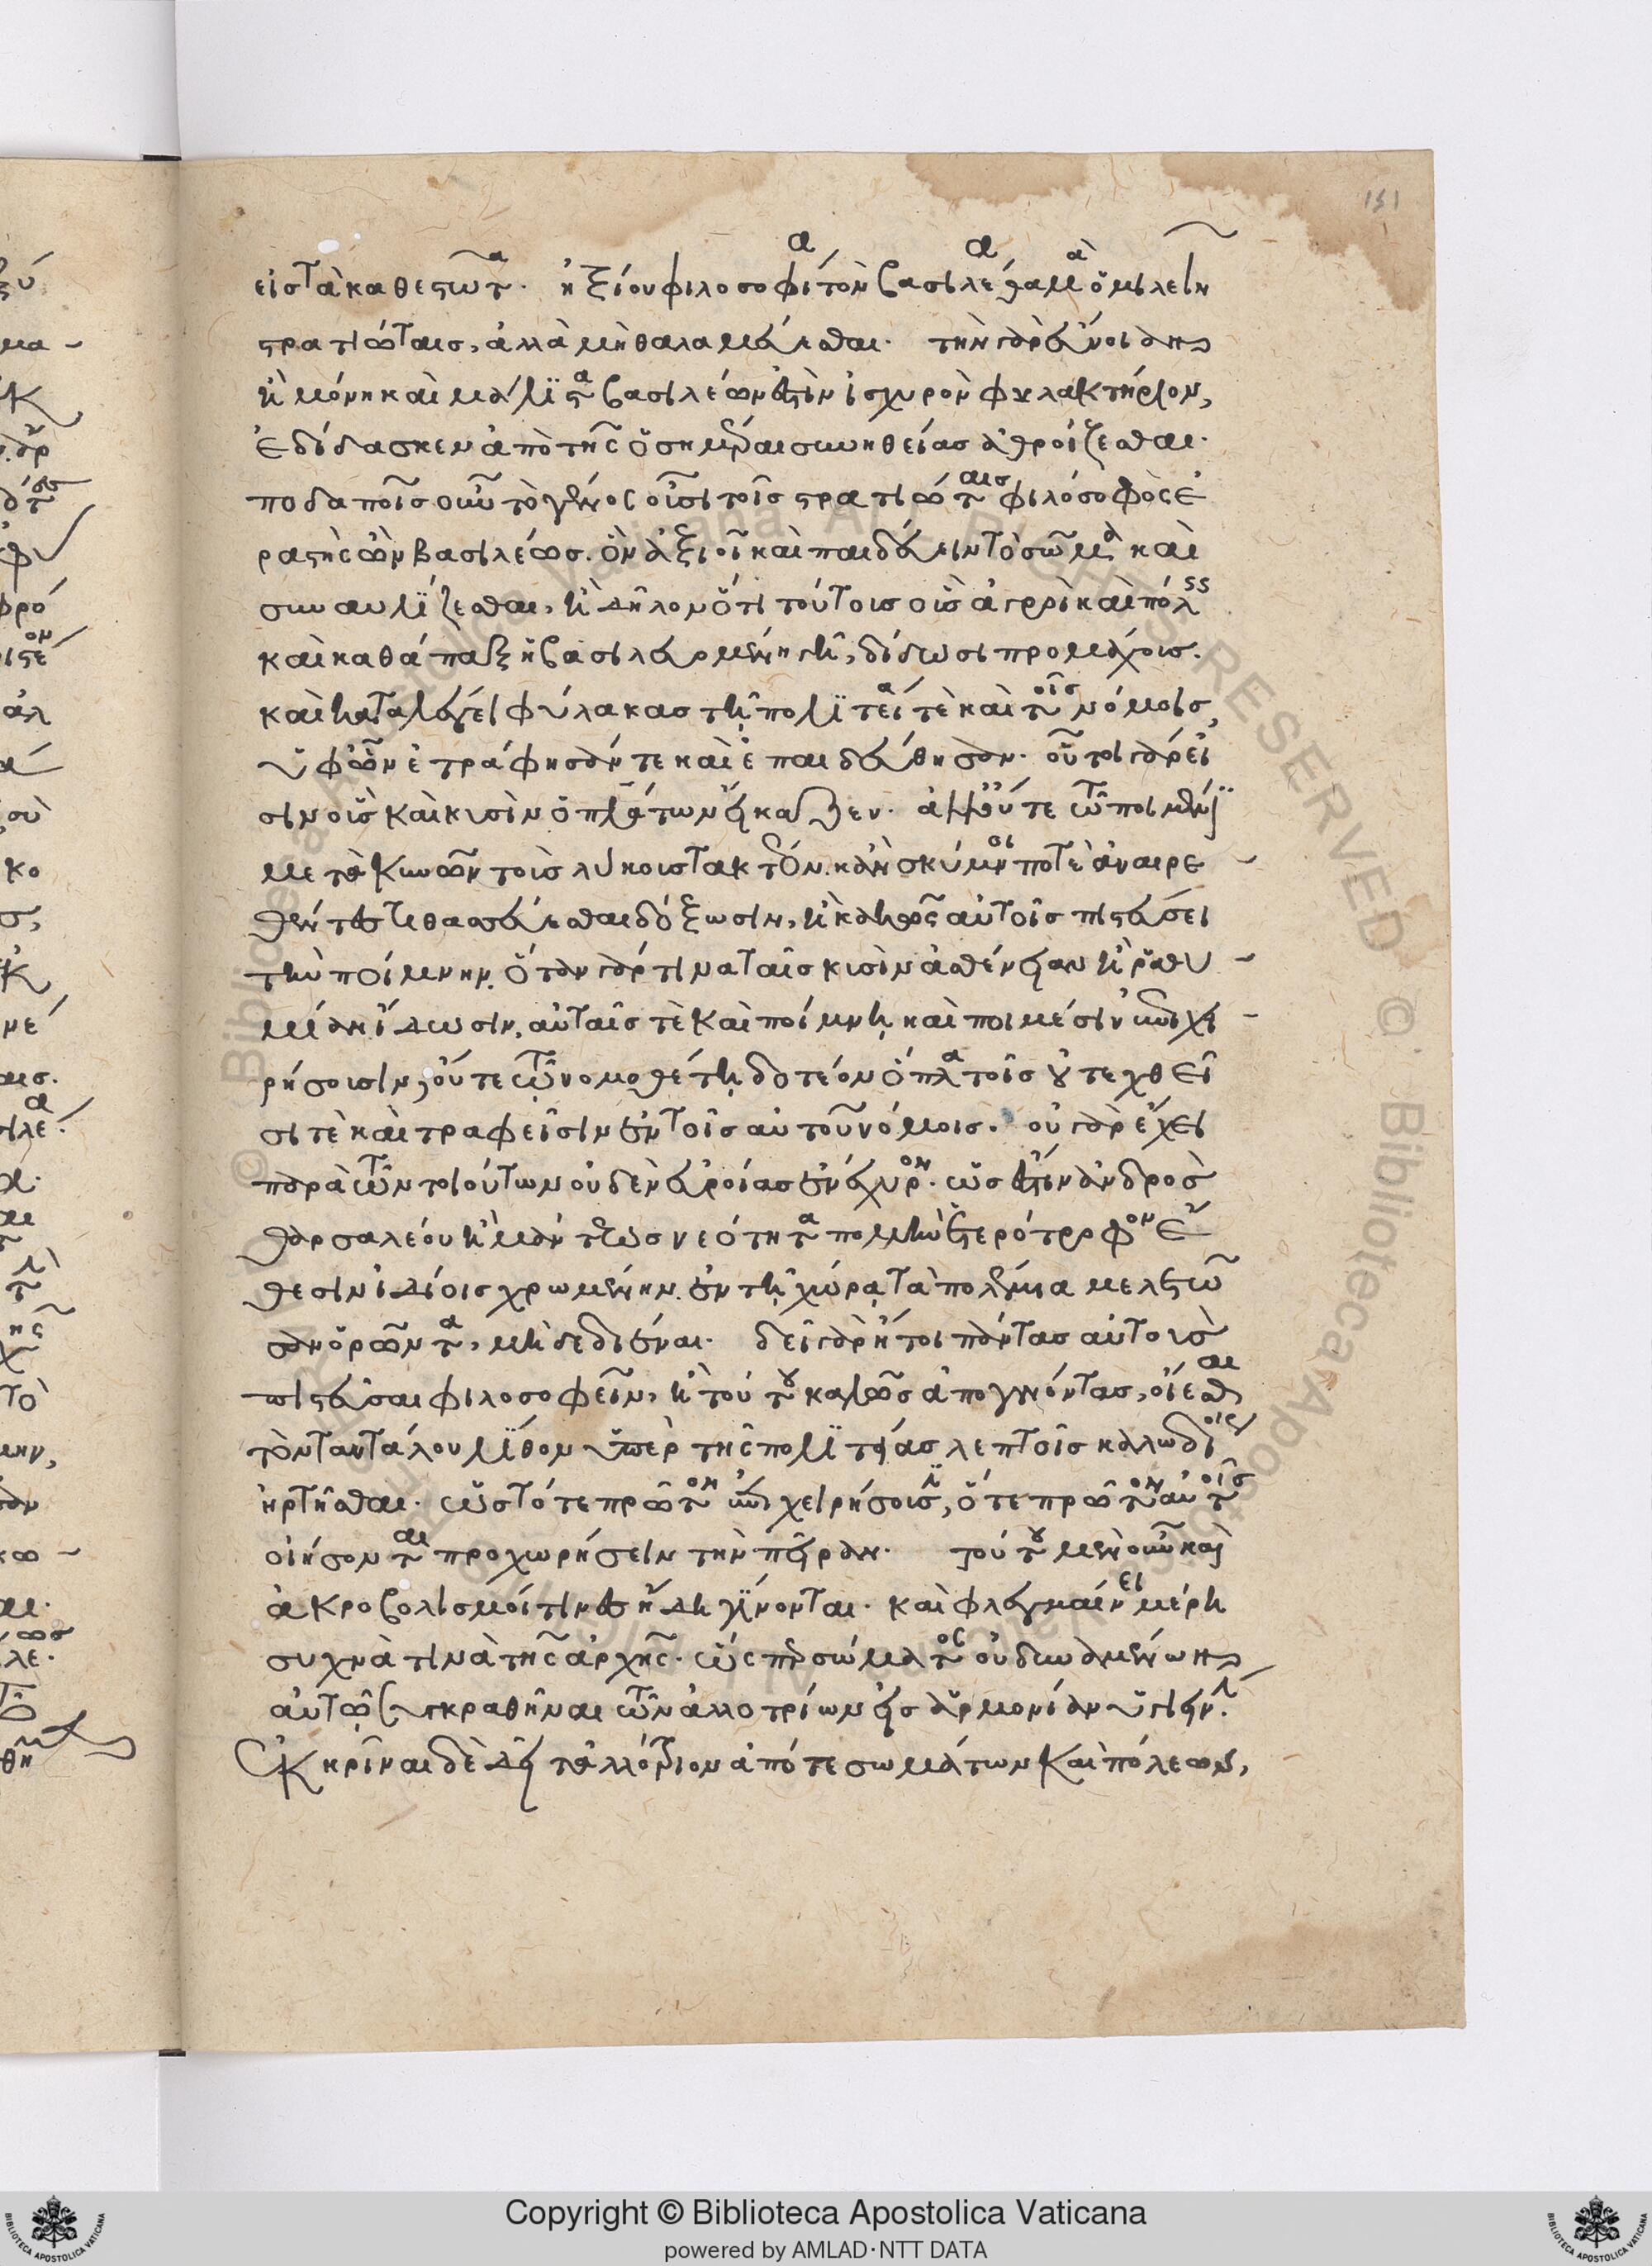 151
εἰς τὰ καθεστῶτα. ἠξίου φιλοσοφία τὸν βασιλέα θαμὰ ὁμιλεῖν
στρατιώταις, ἀλλὰ μὴ θαλαμεύεσθαι. τὴν γὰρ εὔνοιαν
ἣ μόνη καὶ μάλιστα βασιλέων ἐστὶν ἰσχυρὸν φυλακτήριον,
ἐδίδασκεν ἀπὸ τῆς ὁσημέραι συνηθείας ἀθροίζεσθαι.
ποδαποῖς οὖν τὸ γένος οἷσι τοῖς στρατιώταις φιλόσοφος ἐ
ραστὴς ὢν βασιλέως. ὃν ἀξιοῖ καὶ παιδεύειν τὸ σῶμα καὶ
συναυλίζεσθαι, ἢ δῆλον ὅτι τούτοις οἷς ἀγροὶ καὶ πόλεις
καὶ καθάπαξ ἡ βασιλευομένη γῆ, δίδωσι προμάχοις.
καὶ καταλέγει φύλακας τῇ πολιτεία τὲ καὶ τοῖς νόμοις,
ὑφ' ὧν ἐτράφησάν τε καὶ ἐπαιδεύθησαν. οὗτοι γὰρ εἰ
σιν οἷς καὶ κυσὶν ὁ πλάτων εἴκαζεν. ἀλλ' οὔτε τῷ ποιμένι
μετὰ κυνῶν τοὺς λύκους τακτέον. κἂν σκύμνοι ποτὲ ἀναιρε
θέντες τιθασεύεσθαι δόξωσιν, ἢ κακῶς αὐτοῖς πιστεύσει
τὴν ποίμνην. ὅταν γάρ τινα ταῖς κυσὶν ἀσθένειαν ἢ ῥαθυ
μίαν ἴδωσιν, αὐταῖς τὲ καὶ ποίμνῃ καὶ ποιμέσιν ἐπιχει
ρήσουσιν, οὔτε τῷ νομοθέτῃ δοτέον ὅπλα τοῖς οὐ τεχθεῖ
σι τὲ καὶ τραφεῖσιν ἐν τοῖς αὐτοῦ νόμοις. οὐ γὰρ ἔχει
παρὰ τῶν τοιούτων οὐδὲν εὐνοίας ἐνέχυρον. ὡς ἔστιν ἀνδρὸς
θαρσαλέου ἢ μάντεως νεότητα πολλὴν ἑτερότροφον ἔ
θεσιν ἰδίοις χρωμένην. ἐν τῇ χώρᾳ τὰ πολέμια μελετῶ
σαν ὁρῶντα, μὴ δεδιέναι. δεῖ γὰρ ἤτοι πάντας αὐτοὺς
πιστεῦσαι φιλοσοφεῖν, ἢ τούτου καλῶς ἀπογνόντας, οἴεσθαι
τὸν ταντάλου λίθον ὑπὲρ τῆς πολιτείας λεπτοῖς καλωδίοις
ἠρτῆσθαι. ὡς τότε πρῶτον ἐπιχειρήσουσιν, ὅτε πρῶτον αὐτοῖς
οἰήσονται προχωρήσειν τὴν πεῖραν. τούτου μὲν οὖν καὶ
ἀκροβολισμοί τινες ἤδη γίνονται. καὶ φλεγμαίνει μέρη
συχνὰ τινὰ τῆς ἀρχῆς. ὥσπερ σώματος οὐ δυναμένων
αὐτῷ συγκραθῆναι τῶν ἀλλοτρίων εἰς ἁρμονίαν ὑγιεινήν.
ἐκκρῖναι δὲ δεῖν τἀλλότριον ἀπό τε σωμάτων καὶ πόλεων,
Copyright © Biblioteca Apostolica Vaticana
powered by AMLAD·NTT DATA